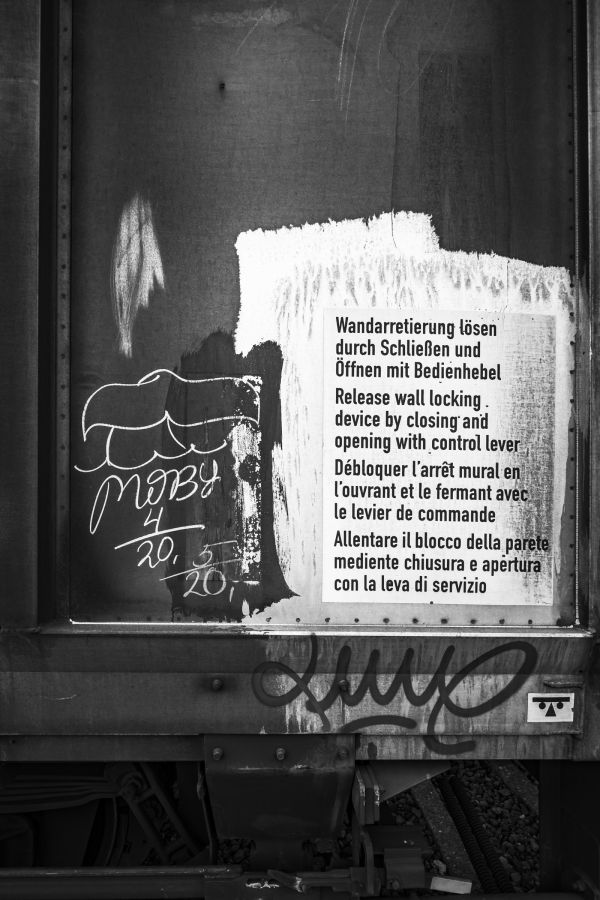 Wandarretierung lösen
durch Schließen und
Öffnen mit Bedienhebel
Release wall locking
device by closing and
opening with control lever
Débloquer l'arrêt mural en
l'ouvrant et le fermant avec
le levier de commande
Allentare il blocco della parete
mediente chiusura e apertura
con la leva di servizio
MOBY
4
20,
5
20,